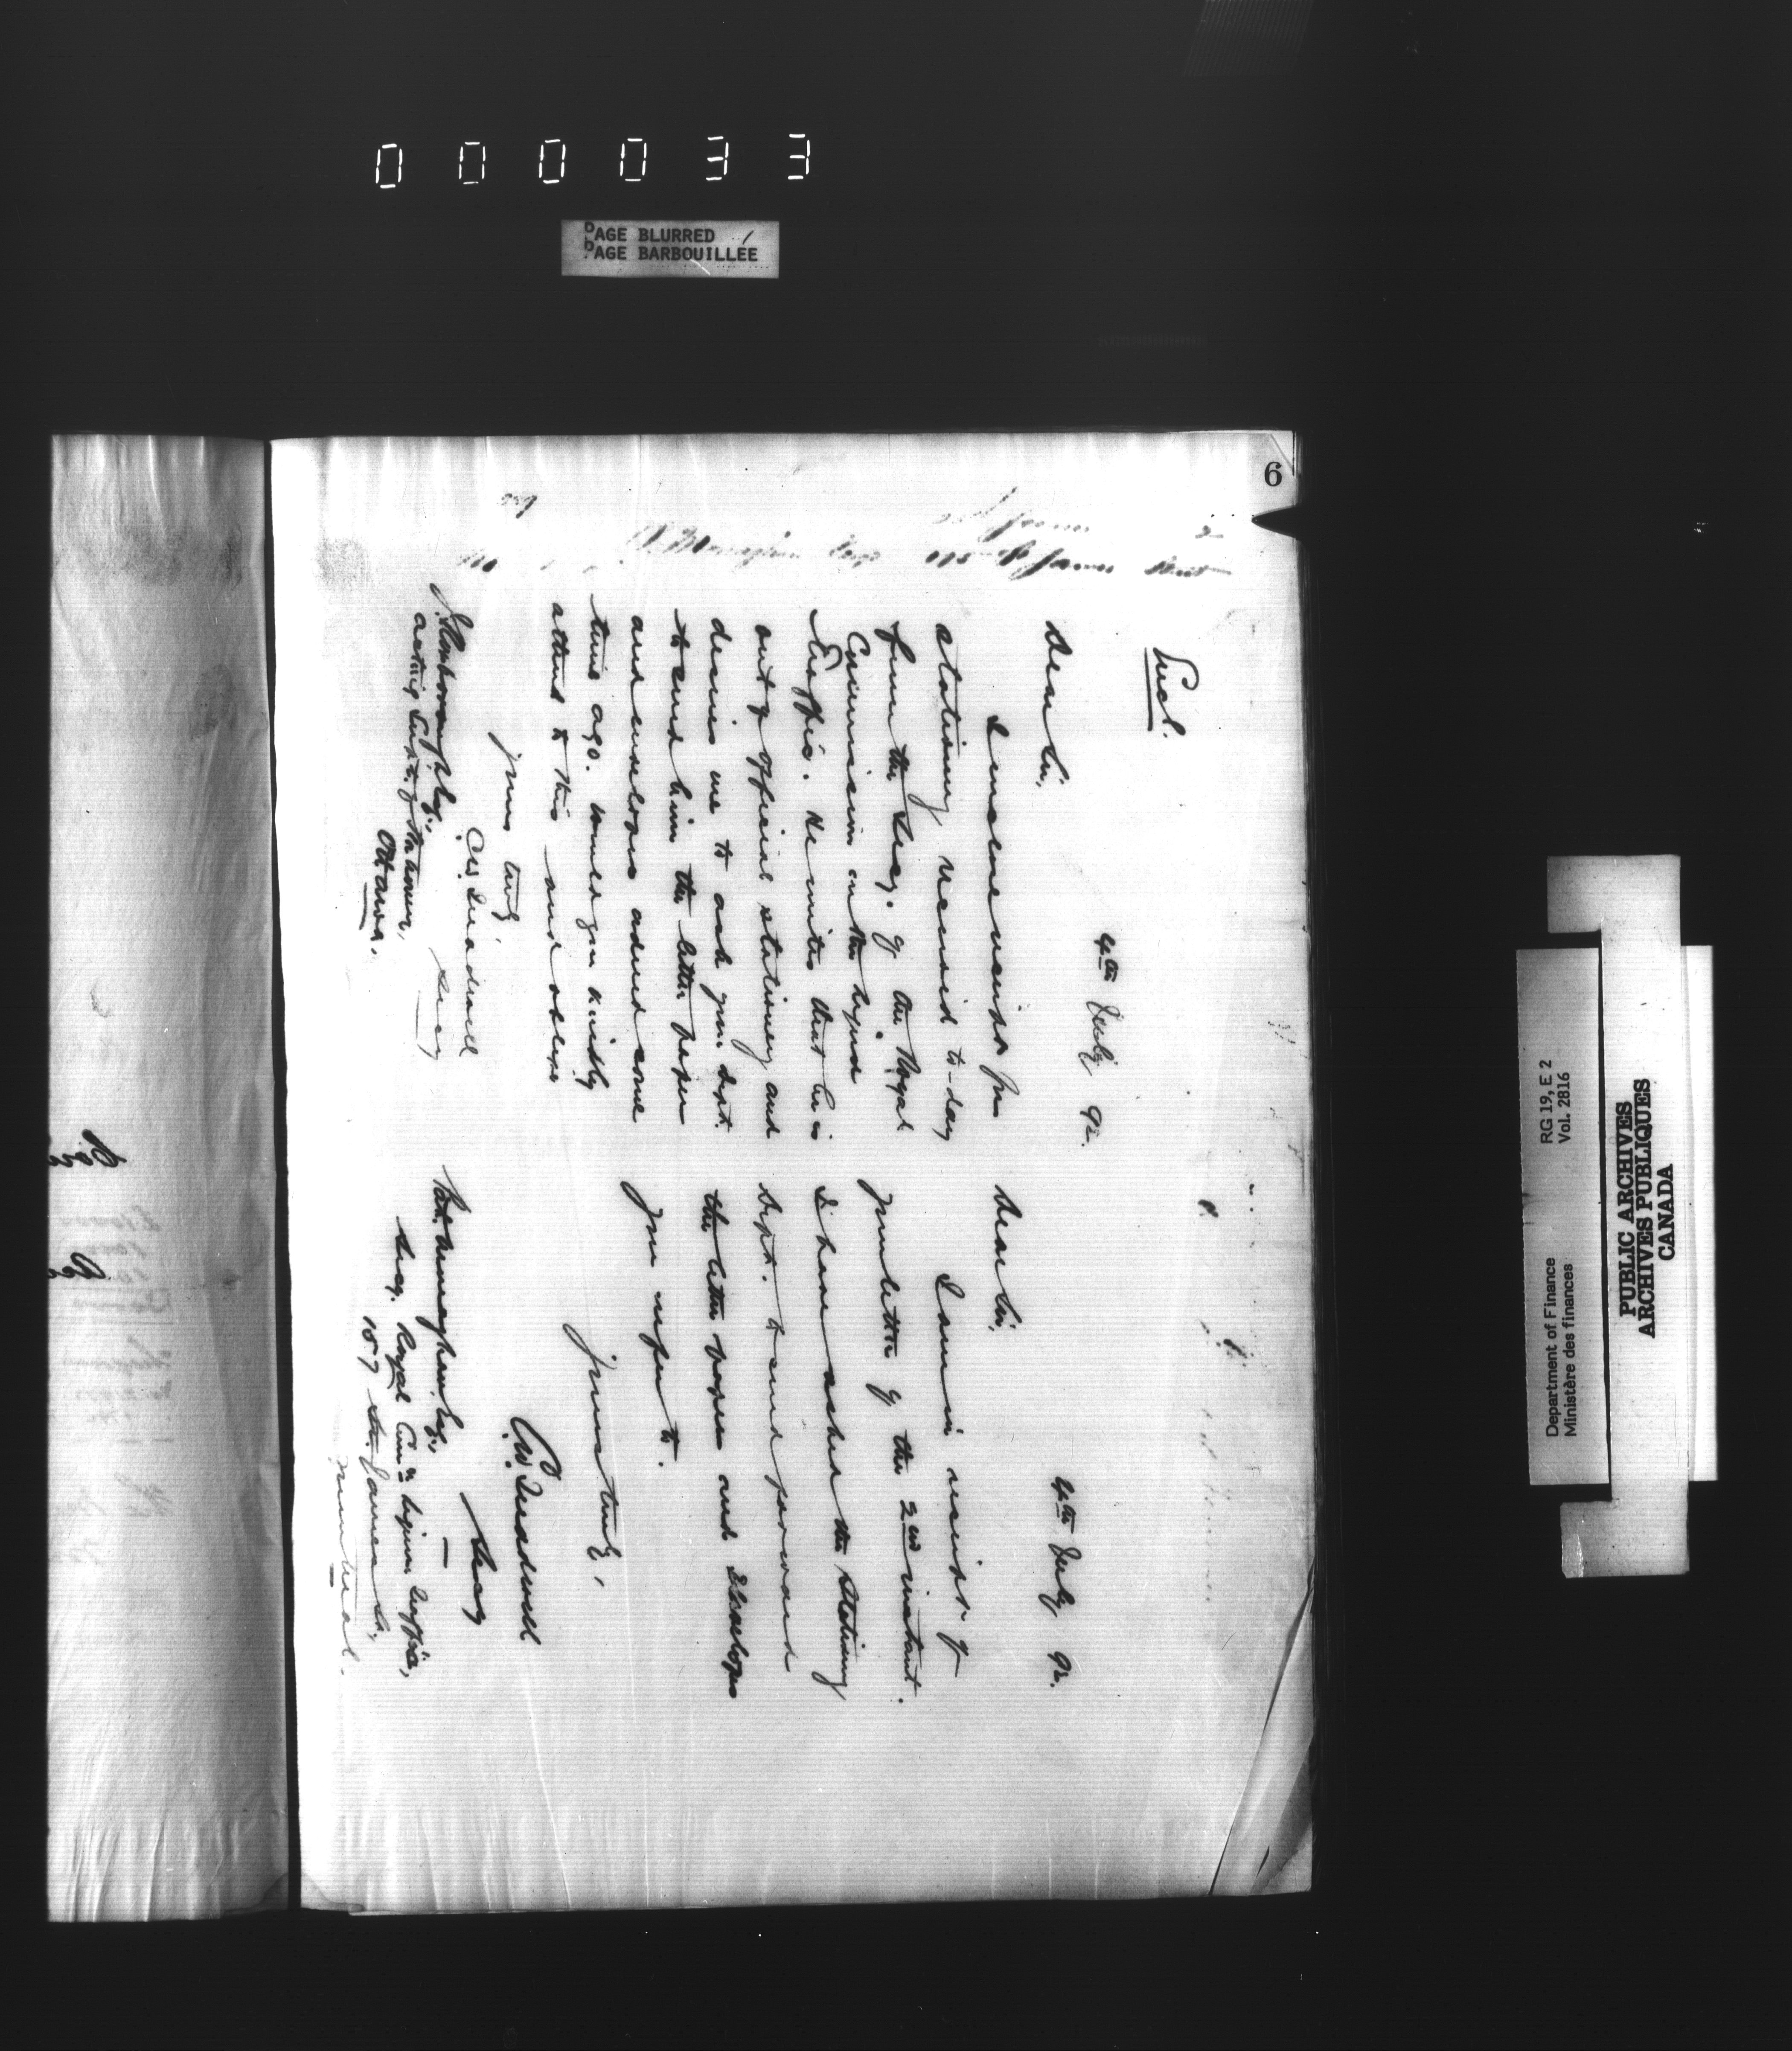 000033
PAGE BLURRED
PAGE BARBOUILLÉE
6
St James Street
Encl.
4th July 92.
Dear Sir,
I enclose receipt for
stationery received to-day
from the Secy. of the Royal
Commission on the liquor
traffic. He writes that he is
out of official stationery and
desires me to ask your Dept.
to send him the letter paper
and envelopes ordered some
time ago. Would you kindly
attend to this and oblige
Yours truly,
Secy
Esq.,
Acting Supt. of Stationery,
Ottawa.
4th July 92.
Dear Sir,
I am in receipt of
your letter of the 2nd instant.
I have asked the Stationery
Dept. to send forward
the letter paper and Envelopes
you refer to.
Yours truly,
Secy
P. Monaghan Esq.,
Secy. Royal Comn Liquor Traffic,
187 St. James St.,
Montreal.
Department of Finance
Ministère des finances
RG 19, E 2
Vol. 2816
PUBLIC ARCHIVES
ARCHIVES PUBLIQUES
CANADA